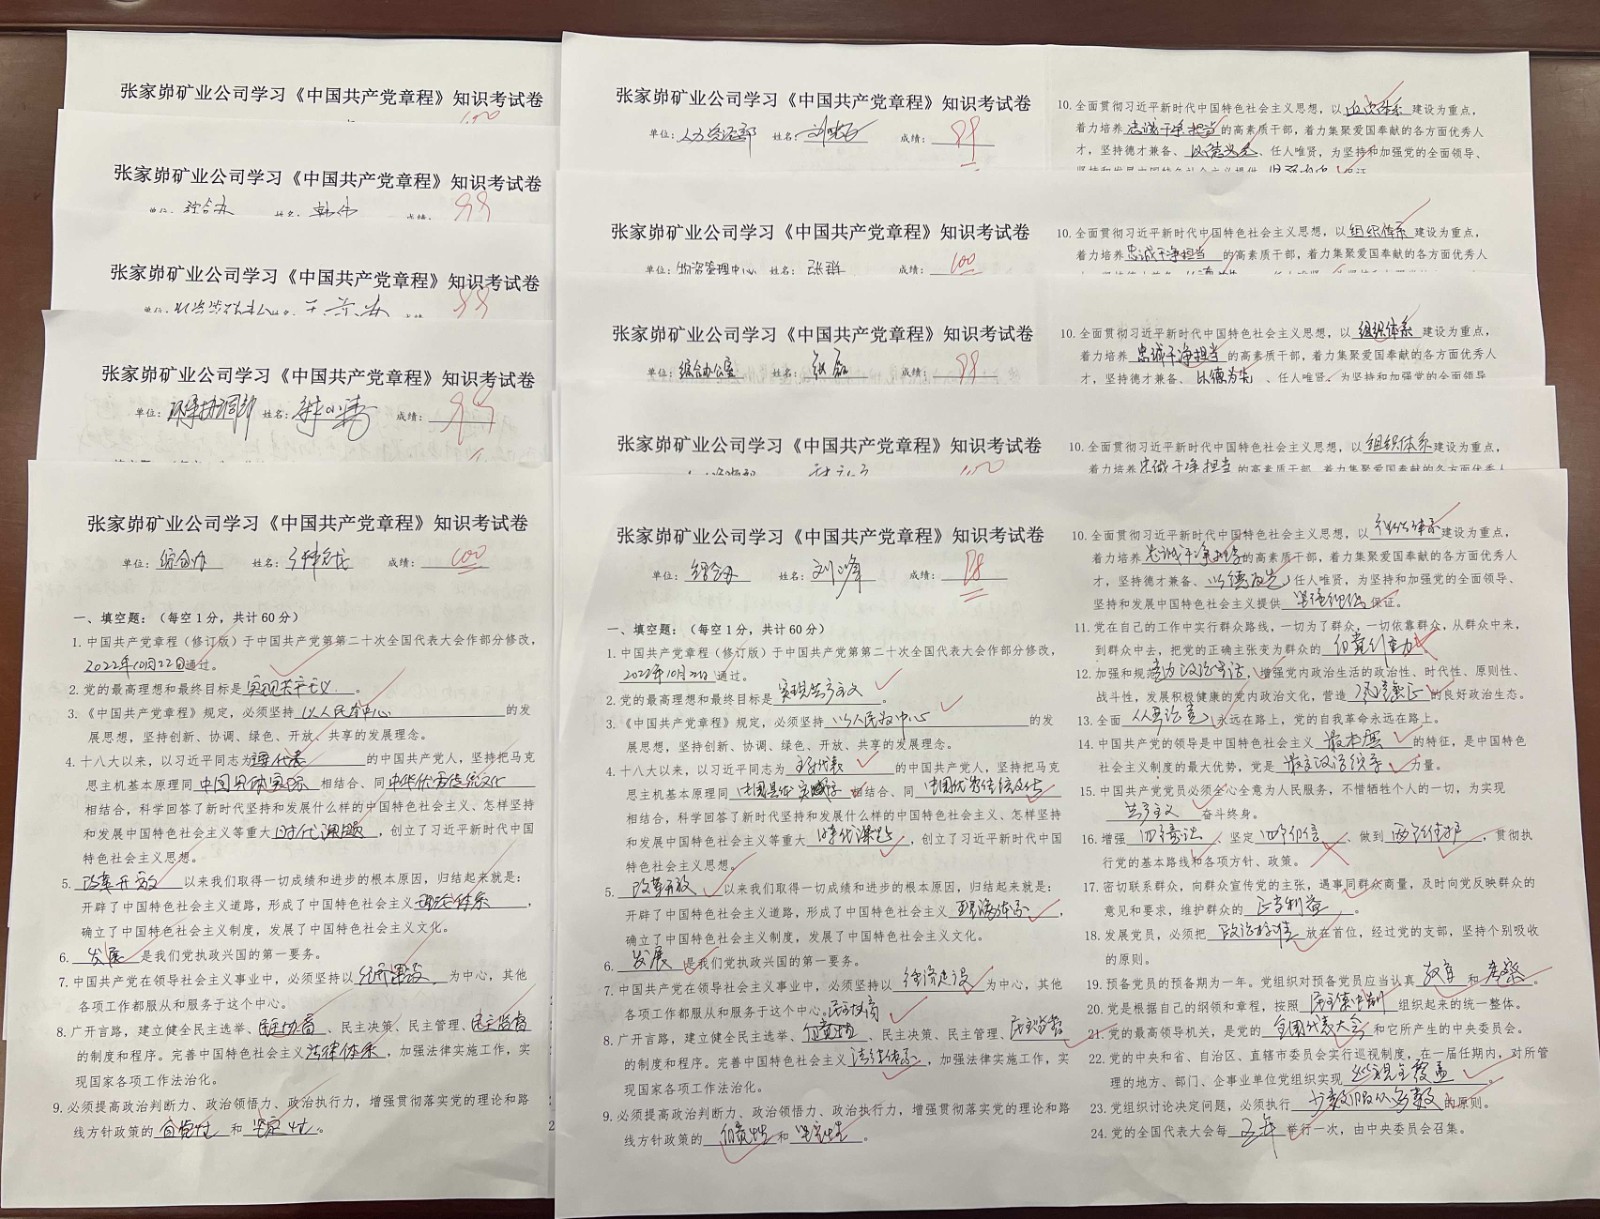 张家峁矿业公司学习《中国共产党章程》知识考试卷
100
张家峁矿业公司学习《中国共产党章程》知识考试卷
单位：综合办 姓名：韩伟 成绩：99
张家峁矿业公司学习《中国共产党章程》知识考试卷
99
张家峁矿业公司学习《中国共产党章程》知识考试卷
单位：环保协调部 姓名： 成绩：99
张家峁矿业公司学习《中国共产党章程》知识考试卷
单位：综合办 姓名： 成绩：100
一、填空题：（每空1分，共计60分）
1. 中国共产党章程（修订版）于中国共产党第第二十次全国代表大会作部分修改，
2022年10月22日通过。
2. 党的最高理想和最终目标是实现共产主义。
3. 《中国共产党章程》规定，必须坚持 以人民为中心 的发
展思想，坚持创新、协调、绿色、开放、共享的发展理念。
4. 十八大以来，以习近平同志为主要代表 的中国共产党人，坚持把马克
思主机基本原理同 中国具体实际 相结合、同 中华优秀传统文化
相结合，科学回答了新时代坚持和发展什么样的中国特色社会主义、怎样坚持
和发展中国特色社会主义等重大 时代课题 ，创立了习近平新时代中国
特色社会主义思想。
5. 改革开放 以来我们取得一切成绩和进步的根本原因，归结起来就是：
开辟了中国特色社会主义道路，形成了中国特色社会主义 理论体系 ，
确立了中国特色社会主义制度，发展了中国特色社会主义文化。
6. 发展 是我们党执政兴国的第一要务。
7. 中国共产党在领导社会主义事业中，必须坚持以 经济建设 为中心，其他
各项工作都服从和服务于这个中心。
8. 广开言路，建立健全民主选举、民主协商、民主决策、民主管理、民主监督
的制度和程序。完善中国特色社会主义法律体系，加强法律实施工作，实
现国家各项工作法治化。
9. 必须提高政治判断力、政治领悟力、政治执行力，增强贯彻落实党的理论和路
线方针政策的 自觉性 和 坚定性 。
张家峁矿业公司学习《中国共产党章程》知识考试卷
单位：人力资源部 姓名： 成绩：99
10. 全面贯彻习近平新时代中国特色社会主义思想，以 建设为重点，
着力培养忠诚干净担当的高素质干部，着力集聚爱国奉献的各方面优秀人
才，坚持德才兼备、以德为先、任人唯贤，为坚持和加强党的全面领导、
张家峁矿业公司学习《中国共产党章程》知识考试卷
单位：物资管理中心 姓名： 成绩：100
10. 全面贯彻习近平新时代中国特色社会主义思想，以组织体系建设为重点，
着力培养忠诚干净担当的高素质干部，着力集聚爱国奉献的各方面优秀人
张家峁矿业公司学习《中国共产党章程》知识考试卷
单位：综合办公室 姓名： 成绩：99
10. 全面贯彻习近平新时代中国特色社会主义思想，以 组织体系 建设为重点，
着力培养 忠诚干净担当 的高素质干部，着力集聚爱国奉献的各方面优秀人
才，坚持德才兼备、以德为先、任人唯贤、为坚持和加强党的全面领导
张家峁矿业公司学习《中国共产党章程》知识考试卷
100
10. 全面贯彻习近平新时代中国特色社会主义思想，以组织体系建设为重点，
着力培养忠诚干净担当的高素质干部，着力集聚爱国奉献的各方面优秀人
张家峁矿业公司学习《中国共产党章程》知识考试卷
单位：综合办 姓名：刘峰 成绩：98
一、填空题：（每空1分，共计60分）
1. 中国共产党章程（修订版）于中国共产党第第二十次全国代表大会作部分修改，
2022年10月22日通过。
2. 党的最高理想和最终目标是 实现共产主义 。
3. 《中国共产党章程》规定，必须坚持 以人民为中心 的发
展思想，坚持创新、协调、绿色、开放、共享的发展理念。
4. 十八大以来，以习近平同志为 主要代表 的中国共产党人，坚持把马克
思主机基本原理同 中国具体实际 相结合、同 中国优秀传统文化
相结合，科学回答了新时代坚持和发展什么样的中国特色社会主义、怎样坚持
和发展中国特色社会主义等重大 时代课题 ，创立了习近平新时代中国
特色社会主义思想。
5. 改革开放 以来我们取得一切成绩和进步的根本原因，归结起来就是：
开辟了中国特色社会主义道路，形成了中国特色社会主义 理论体系 ，
确立了中国特色社会主义制度，发展了中国特色社会主义文化。
6. 发展 是我们党执政兴国的第一要务。
7. 中国共产党在领导社会主义事业中，必须坚持以 经济建设 为中心，其他
各项工作都服从和服务于这个中心。
民主协商
8. 广开言路，建立健全民主选举、 、民主决策、民主管理、民主监督
的制度和程序。完善中国特色社会主义 法律体系 ，加强法律实施工作，实
现国家各项工作法治化。
9. 必须提高政治判断力、政治领悟力、政治执行力，增强贯彻落实党的理论和路
线方针政策的 自觉性 和 坚定性 。
10. 全面贯彻习近平新时代中国特色社会主义思想，以 组织体系 建设为重点，
着力培养忠诚干净担当的高素质干部，着力集聚爱国奉献的各方面优秀人
才，坚持德才兼备、以德为先、任人唯贤，为坚持和加强党的全面领导、
坚持和发展中国特色社会主义提供 坚强组织 保证。
11. 党在自己的工作中实行群众路线，一切为了群众，一切依靠群众，从群众中来，
到群众中去，把党的正确主张变为群众的
12. 加强和规范党内政治生活，增强党内政治生活的政治性、时代性、原则性、
战斗性，发展积极健康的党内政治文化，营造 风清气正 的良好政治生态。
13. 全面 从严治党 永远在路上，党的自我革命永远在路上。
14. 中国共产党的领导是中国特色社会主义 最本质 的特征，是中国特色
社会主义制度的最大优势，党是 最高政治领导 力量。
15. 中国共产党党员必须全心全意为人民服务，不惜牺牲个人的一切，为实现
共产主义 奋斗终身。
16. 增强 四个意识 、坚定 四个自信 、做到 两个维护 ，贯彻执
行党的基本路线和各项方针、政策。
17. 密切联系群众，向群众宣传党的主张，遇事同群众商量，及时向党反映群众的
意见和要求，维护群众的 正当利益 。
18. 发展党员，必须把 政治标准 放在首位，经过党的支部，坚持个别吸收
的原则。
19. 预备党员的预备期为一年。党组织对预备党员应当认真 教育 和 考察 。
20. 党是根据自己的纲领和章程，按照 民主集中制 组织起来的统一整体。
21. 党的最高领导机关，是党的 全国代表大会 和它所产生的中央委员会。
22. 党的中央和省、自治区、直辖市委员会实行巡视制度，在一届任期内，对所管
理的地方、部门、企事业单位党组织实现 巡视全覆盖 。
23. 党组织讨论决定问题，必须执行 少数服从多数 的原则。
24. 党的全国代表大会每 五年 举行一次，由中央委员会召集。